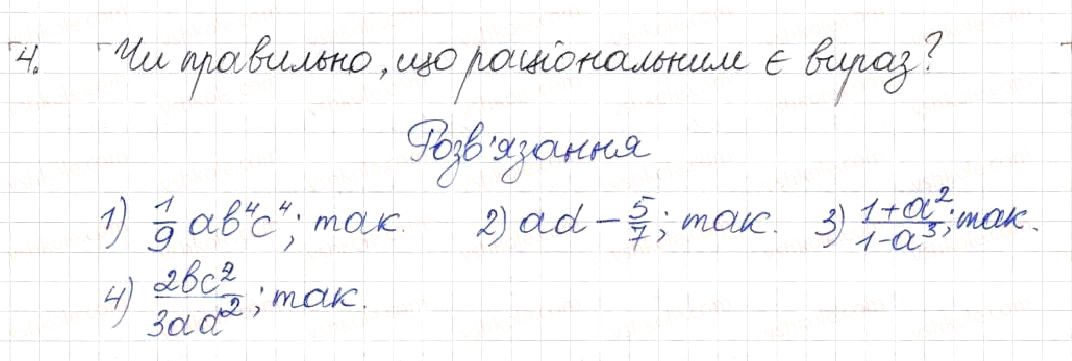 4. Чи правильно, що раціональним є вираз?
Розв'язання
1) 1/9 ab⁴c⁴; так. 2) ad - 5/7; так. 3) (1+a²)/(1-a³); так.
4) 2bc²/3ad²; так.